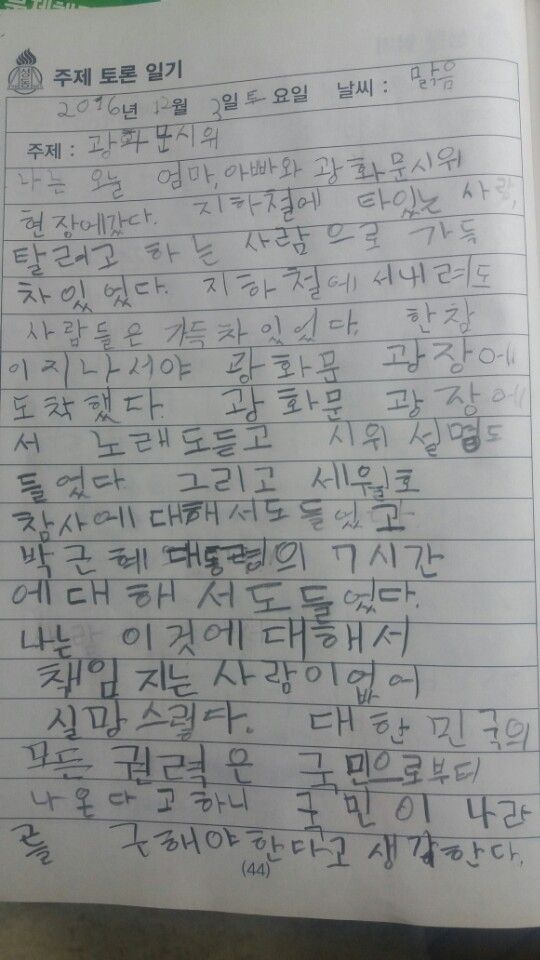 주제 토론 일기
2016년 12월 3일 토요일 날씨 : 맑음
주제 : 광화문시위
나는 오늘 엄마,아빠와 광화문시위
현장에갔다. 지하철에 타있는 사람,
탈려고 하는 사람으로 가득
차있었다. 지하철에서내려도
사람들은 가득차있었다. 한참
이지나서야 광화문 광장에
도착했다. 광화문 광장에
서 노래도듣고 시위 설명도
들었다 그리고 세월호
참사에대해서도들었고
박근혜 대통령의 7시간
에대해서도들었다.
나는 이것에대해서
책임 지는사람이없어
실망스럽다. 대한민국의
모든 권력은 국민으로부터
나온다고하니 국민이 나라
를 구해야한다고생각한다.
(44)